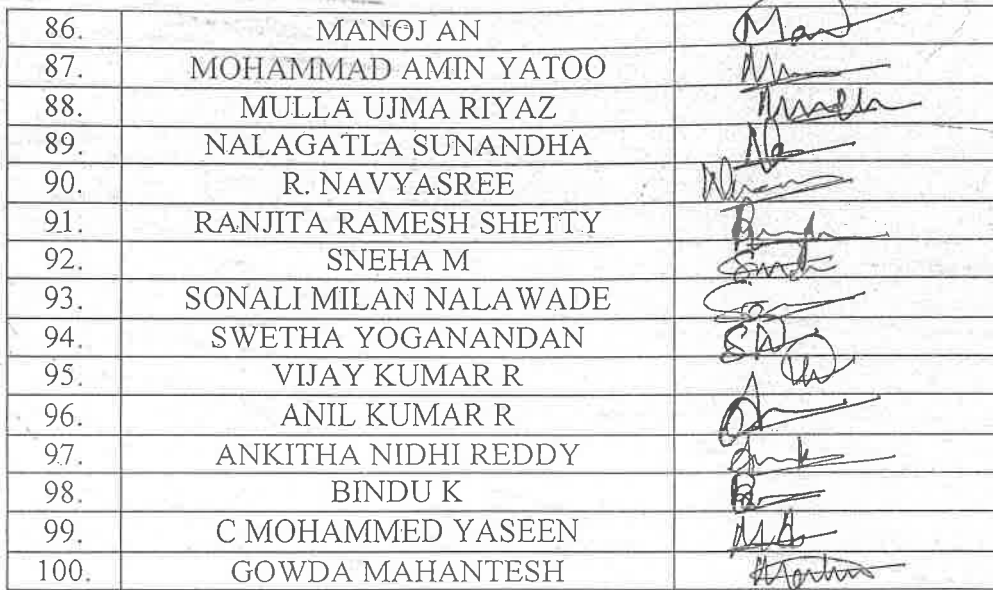 86. MANOJ AN
87. MOHAMMAD AMIN YATOO
88. MULLA UJMA RIYAZ
89. NALAGATLA SUNANDHA
90. R. NAVYASREE
91. RANJITA RAMESH SHETTY
92. SNEHA M
93. SONALI MILAN NALAWADE
94. SWETHA YOGANANDAN
95. VIJAY KUMAR R
96. ANIL KUMAR R
97. ANKITHA NIDHI REDDY
98. BINDU K
99. C MOHAMMED YASEEN
100. GOWDA MAHANTESH